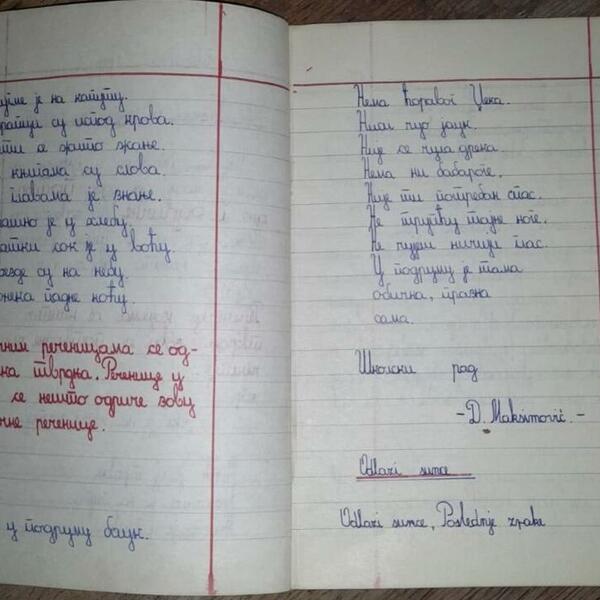 је на капуту.
су испод крова.
е жито жање.
књигама су слова.
главама је знање.
је у хлебу.
сок је у воћу.
су на небу.
падне ноћу.
реченицама се од-
на тврдња. Реченице у
се нешто одриче зову
не реченице.
у подруму баук.
Нема ћоравог Џека.
Ниси чуо јаук.
Није се чула дрека.
Нема ни бабароге.
Није ти потребан спас.
Не трупћу тајне ноге.
Не чујеш ничији глас.
У подруму је тама
обична, празна
сама.
Школски рад
- D. Maksimović. -
Odlazi sunce
Odlazi sunce, Poslednje zrake